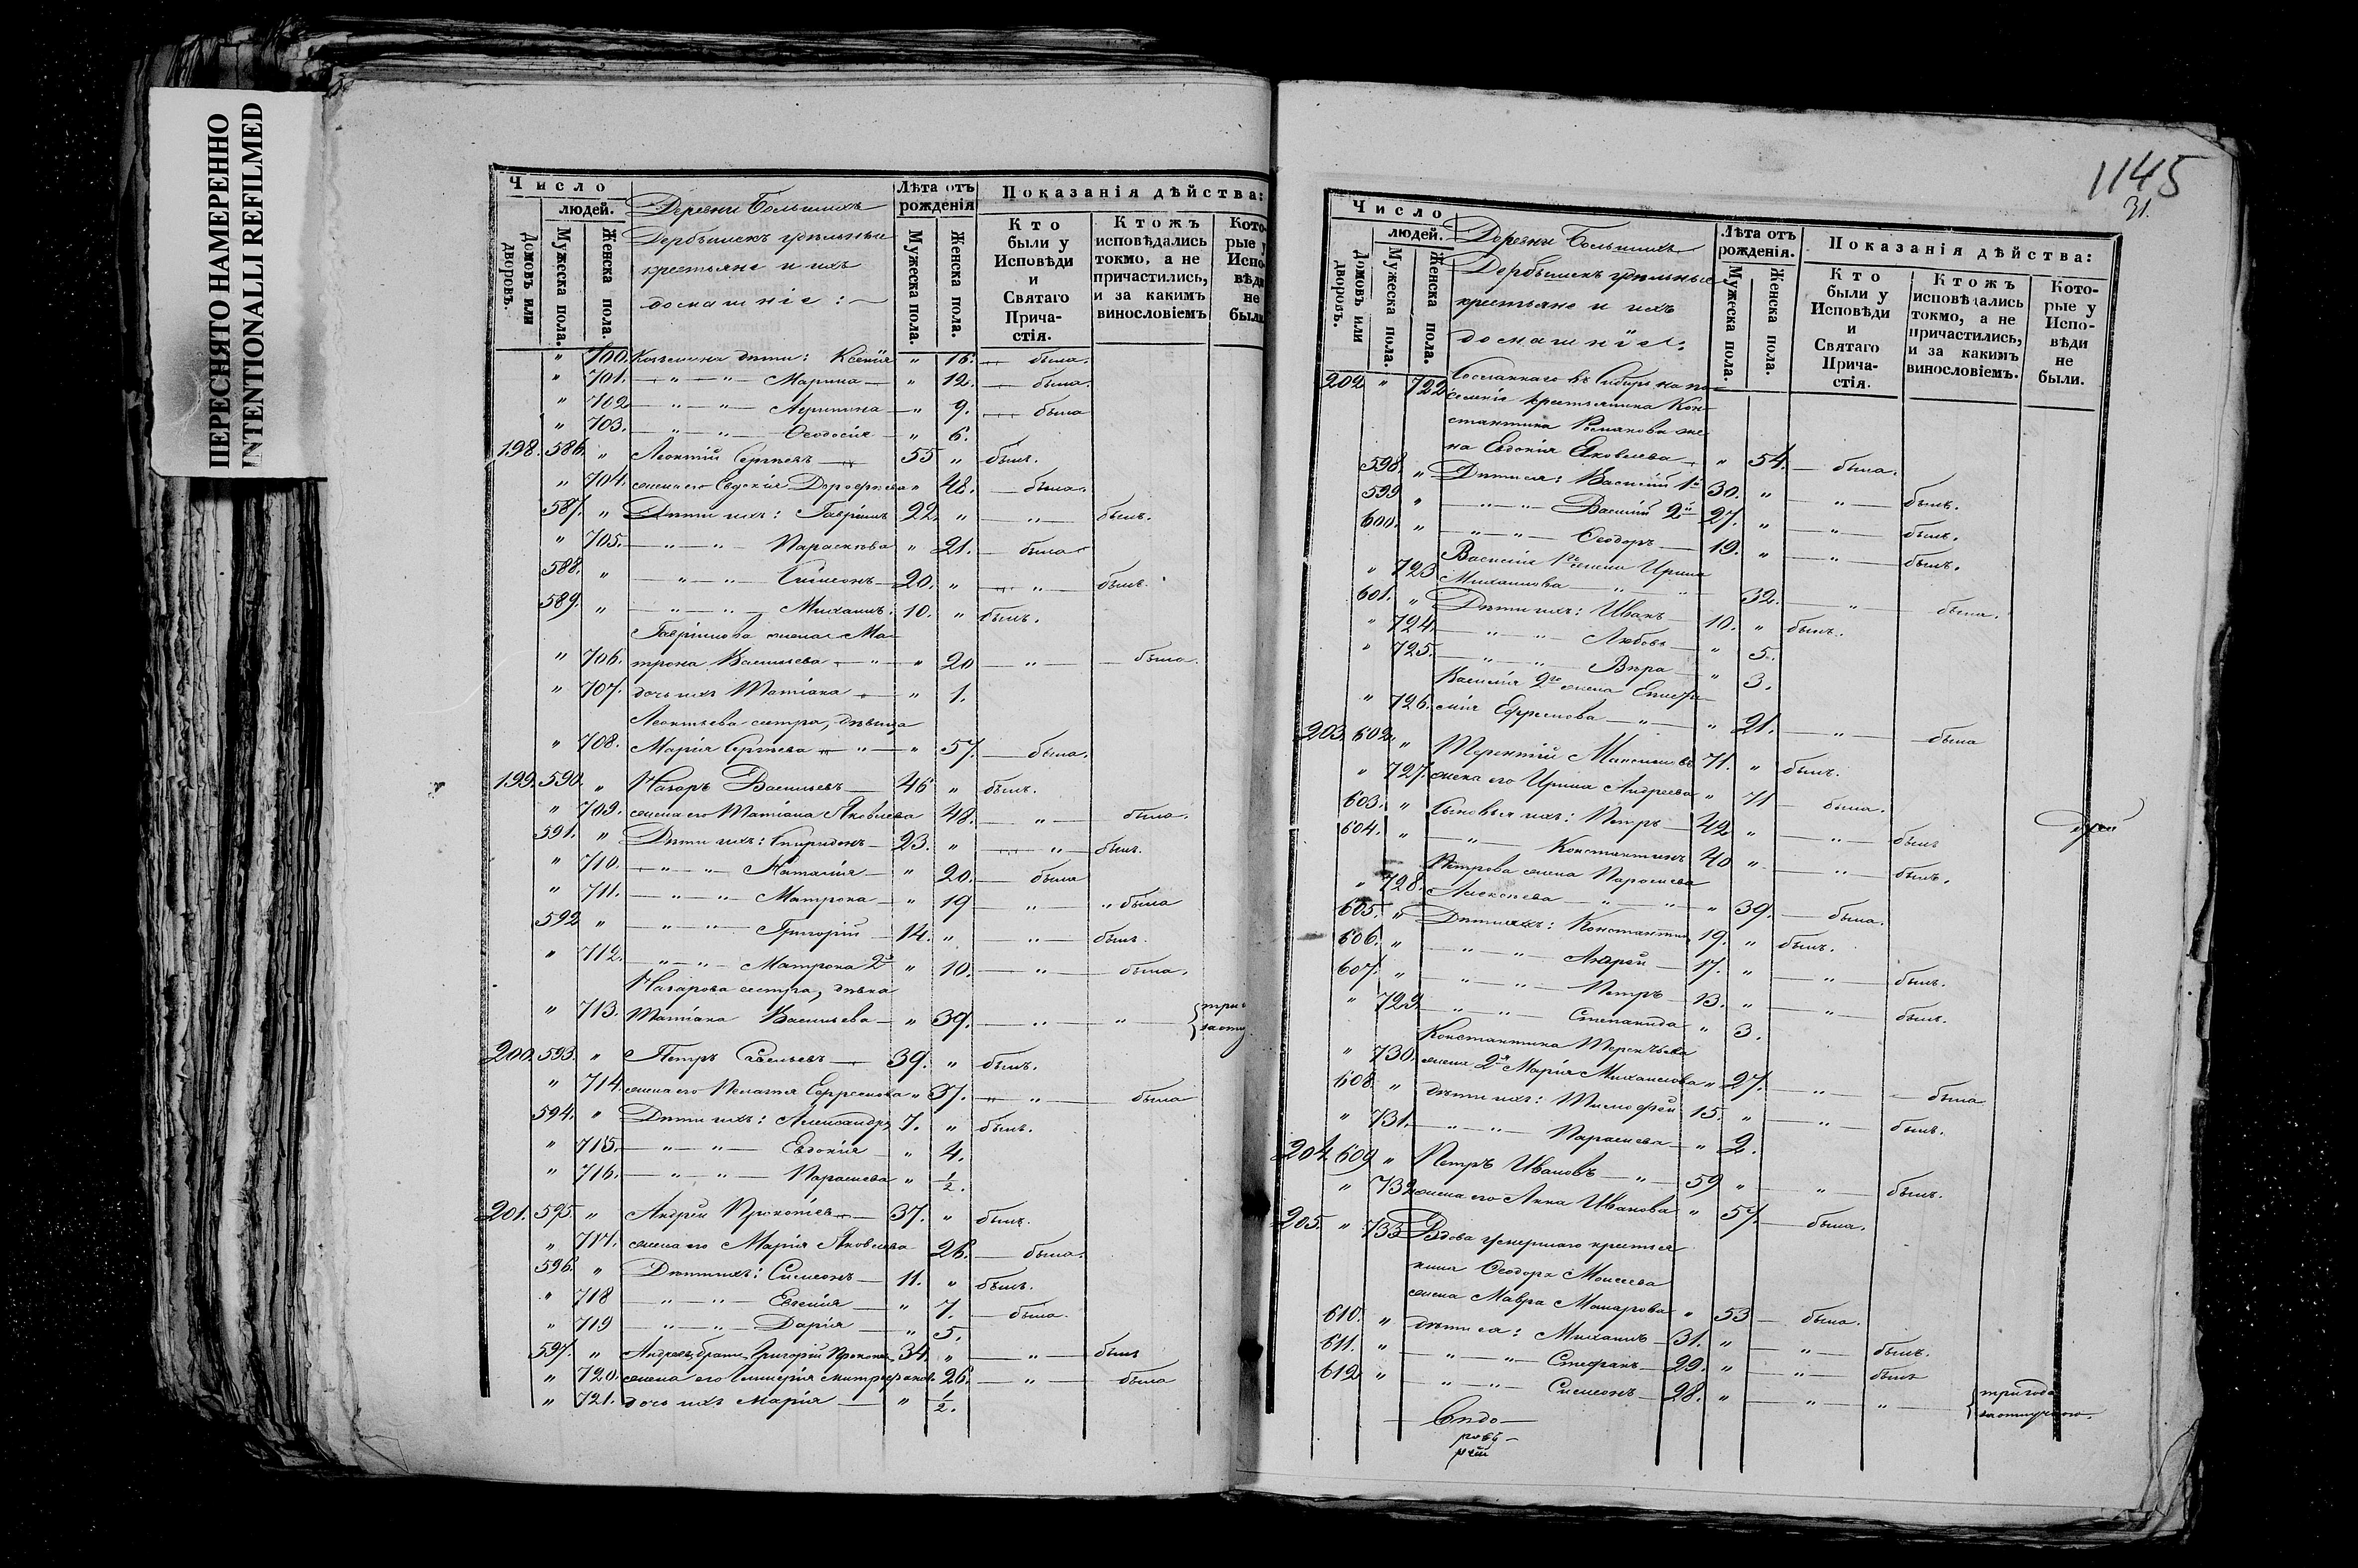 ПЕРЕСНЯТО НАМЕРЕННО
INTENTIONALLI REFILMED
Число
людей.
Домовъ или дворовъ.
Мужеска пола.
Женска пола.
Деревни Большихъ
Дербышекъ удѣльные
крестьяне и ихъ
домашніе :
Лѣта отъ рожденія
Мужеска пола.
Женска пола.
Показанія дѣйства:
Кто были у Исповѣди и Святаго Прича-стія.
Ктожъ исповѣдались токмо, а не причастились, и за какимъ винословіемъ
Кото-рые у Испо-вѣди не были
" 700. дѣти: Ксенія " 16. — была.
" 701. — " — " — Марина — " 12. — была.
" 702 — " — " — " 9. — была
" 703. — " — " — Ѳеодосія — " 6.
198. 586. " Леонтій Сергѣевъ — 55 " былъ.
" 704. жена его Евдокія Дороѳѣева " 48. — была.
587. " Дѣти ихъ: Гавріилъ 22. " — " — былъ.
" 705. — " — " — Параскева " 21. — была
588. " — " — " — Симеонъ — 20. " — " — былъ.
589. " — " — " — Михаилъ. 10. " былъ.
Гавріилова жена Ма-
" 706. трона Васильева — " — " 20 — " — была.
" 707. дочь ихъ Татіана — " 1.
Леонтьева сестра, дѣвица
" 708. Марія Сергѣева — " — " 57. — была.
199. 590. " Назаръ Васильевъ — 46 " былъ.
" 709. жена его Татіана Яковлева 48. — " — была.
591. " Дѣти ихъ: Спиридонъ — 23. " — " — былъ.
" 710. — " — " — Наталія — " 20. — была
" 711. — " — " — Матрона — " 19 — " — " была
592 " — " — " — Григорій — 14. " — " — былъ
" 712. — " — " — Матрона 2я " 10. — " — была.
Назарова сестра, дѣвка
" 713. Татіана Васильева — " 39. — " — "
200. 593. " Петръ Савельевъ — 39. " былъ.
" 714. жена его Пелагея Ефремова " 37. — " — была
594. " Дѣти ихъ: Александръ 7. " былъ.
" 715. — " — " — Евдокія — " 4.
" 716. — " — " — Параскева " ½.
201. 595. " Андрей Прокопіевъ — 37. " былъ.
" 717. жена его Марія Яковлева 26. — была.
596. " Дѣти ихъ: Симеонъ — 11. " былъ.
" 718 — " — " — Евгенія — " 7. — была.
" 719 — " — " — Дарія — " 5.
597. " Андреевъ братъ Григорій 34. " — " — былъ
" 720. жена его 26. — " — была
" 721. дочь ихъ Марія — " ½.
1145
31.
Число
людей.
Домовъ или дворовъ.
Мужеска пола.
Женска пола.
Деревни Большихъ
Дербышекъ удѣльные
крестьяне и ихъ
домашніе.
Лѣта отъ рожденія.
Мужеска пола.
Женска пола.
Показанія дѣйства:
Кто были у Исповѣди и Святаго Прича-стія.
Ктожъ исповѣдались токмо, а не причастились, и за какимъ винословіемъ.
Кото-рые у Испо-вѣди не были.
202 " 722 Сосланнаго въ Сибирь на по-
селеніе крестьянина Кон-
стантина Романова же-
на Евдокія Яковлева — " 54. — была.
598. " Дѣти ея: Василій 1й 30. " — " — былъ.
599 " — " — " — Василій 2й 27. " — " — былъ.
600. " — " — " — Ѳеодоръ — 19. " — " — былъ.
" 723 Василія 1го жена Ирина
Михаилова — " — " 32. — " — была.
601. " Дѣти ихъ: Иванъ — 10. " былъ.
" 724. — " — " — Любовь — " 5.
" 725. — " — " — Вѣра — " 3.
Василія 2го жена Еписти-
" 726. мія Ефремова — " — " 21. — " — была
203. 602. " Терентій Максимовъ 71. " былъ.
" 727. жена его Ирина Андреева " 71 — была.
603. " Сыновья ихъ: Петръ — 42 " — " — былъ
604. " — " — Константинъ 40 " — " — былъ.
Петрова жена Параскева
" 728. Алексѣева — " — " 39. — была.
605. " Дѣти ихъ: Константинъ 19. " былъ.
606. " — " — " — Андрей — 17. " — " — былъ.
607. " — " — " — Петръ — 13. " — " — былъ.
" 729. — " — " — Степанида " 3.
Константина Терентьева
" 730. жена 2я Марія Михаилова " 27. — " — была
608 " дѣти ихъ: Тимоѳей 15. " — " — былъ.
" 731. — " — " — Параскева — " 2.
204 609 " Петръ Ивановъ — " — 59 " — " — былъ.
" 732 жена его Анна Иванова " 57. — была.
205. " 733 Вдова умершаго крестья-
нина Ѳеодора Моисеева
жена Мавра Макарова " 53 — была.
610. " дѣти ея: Михаилъ — 31. " — " — былъ.
611. " — " — " — Стефанъ — 29. " — " — былъ
612 " — " — " — Симеонъ — 28. " — " — " три года
за отлучкою.